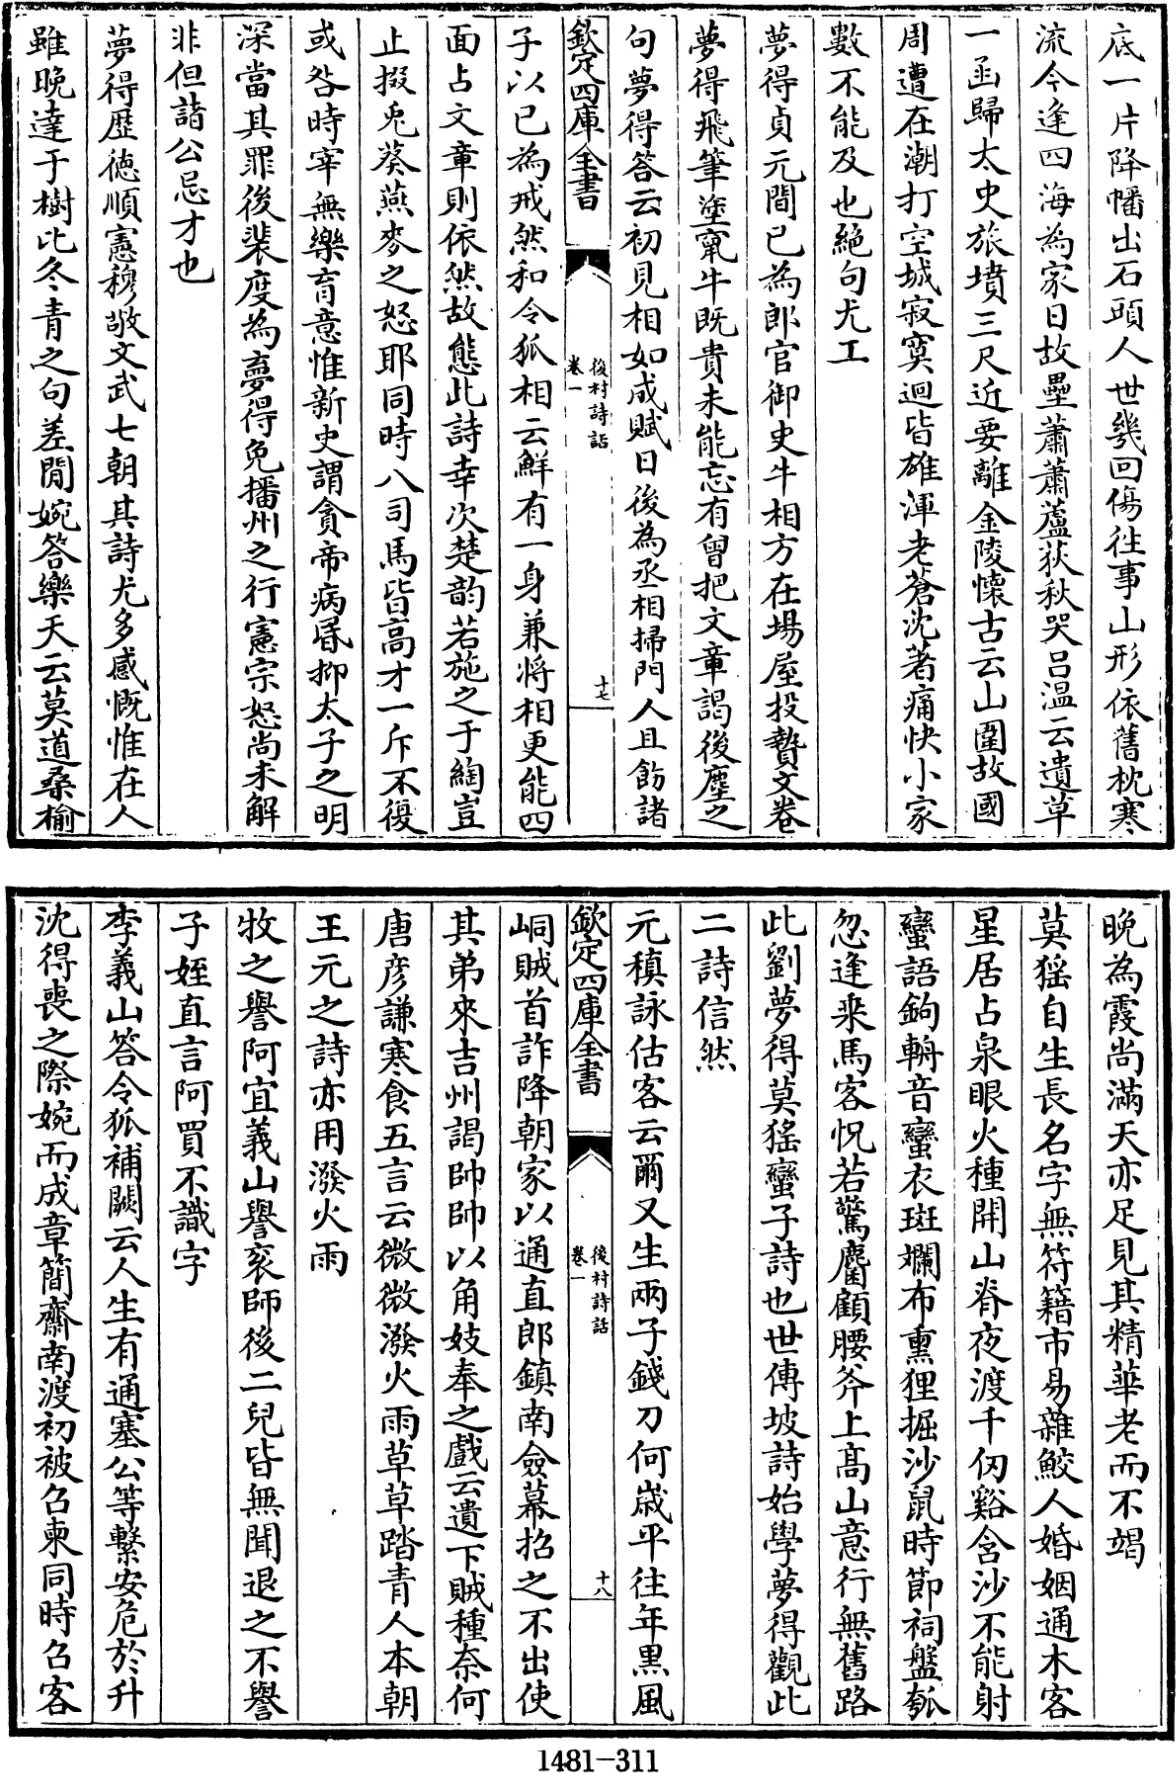 底一片降幡出石頭人世幾回傷往事山形依舊枕寒
流今逢四海為家日故壘蕭蕭蘆荻秋哭呂温云遺草
一函歸太史旅墳三尺近要離金陵懐古云山圍故國
周遭在潮打空城寂寞迴皆雄渾老蒼沈著痛快小家
數不能及也絶句尤工
夢得貞元間已為郎官御史牛相方在場屋投贄文卷
夢得飛筆塗竄牛既貴未能忘有曾把文章謁後塵之
句夢得答云初見相如成賦日後為丞相掃門人且飭諸
欽定四庫全書
後村詩話
卷一
十七
子以已為戒然和令狐相云鮮有一身兼將相更能四
面占文章則依然故態此詩幸次楚韵若施之于綯豈
止掇兎葵燕麥之怒耶同時八司馬皆高才一斥不復
或咎時宰無樂育意惟新史謂貪帝病昬抑太子之明
深當其罪後裴度為夢得免播州之行憲宗怒尚未解
非但諸公忌才也
夢得歴徳順憲穆敬文武七朝其詩尤多感慨惟在人
雖晚達于樹比冬青之句差閒婉答樂天云莫道桑榆
晚為霞尚滿天亦足見其精華老而不竭
莫猺自生長名字無符籍市易雜鮫人婚姻通木客
星居占泉眼火種開山脊夜渡千仞谿含沙不能射
蠻語鉤輈音蠻衣斑斕布熏狸掘沙鼠時節祠盤瓠
忽逢乗馬客怳若驚麏顧腰斧上髙山意行無舊路
此劉夢得莫猺蠻子詩也世傳坡詩始學夢得觀此
二詩信然
元稹詠估客云爾又生兩子錢刀何嵗平往年黒風
欽定四庫全書
後村詩話
卷一
十八
峒賊首詐降朝家以通直郎鎮南僉幕招之不出使
其弟來吉州謁帥帥以角妓奉之戲云遺下賊種奈何
唐彦謙寒食五言云微微潑火雨草草踏青人本朝
王元之詩亦用潑火雨
牧之譽阿宜義山譽衮師後二兒皆無聞退之不譽
子姪直言阿買不識字
李義山答令狐補闕云人生有通塞公等繫安危於升
沈得喪之際婉而成章簡齋南渡初被召柬同時召客
1481-311